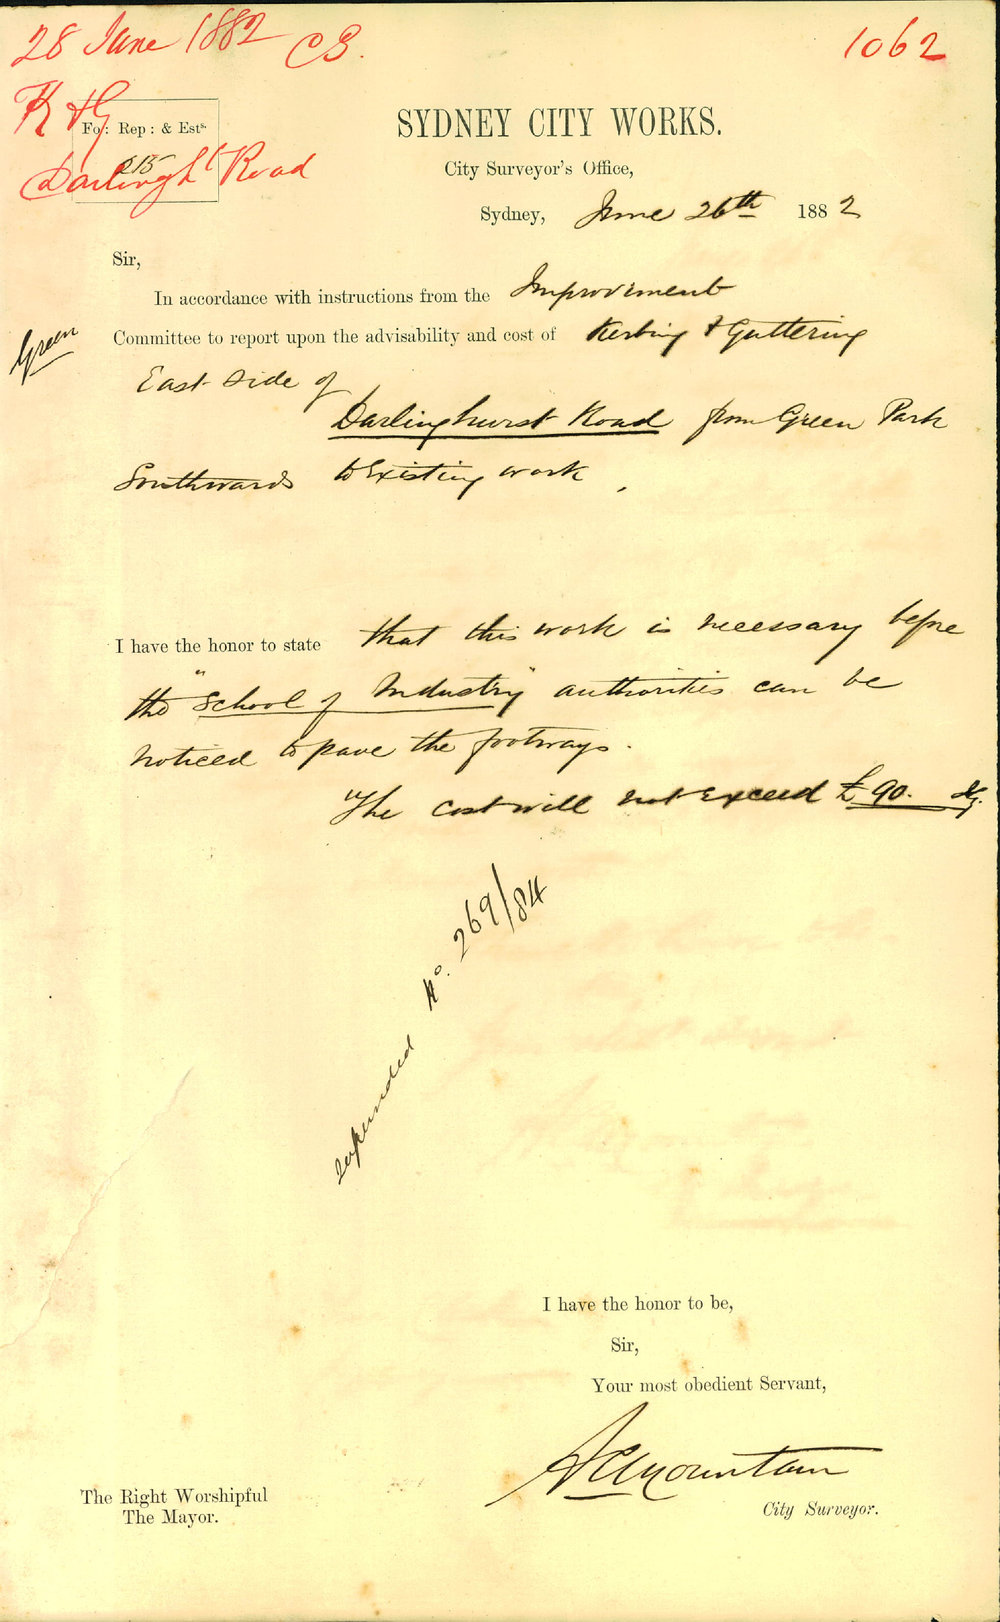 28 June 1882 CS.
1062
K & G
Fo: Rep: & Ests.
215
Darlinght Road
SYDNEY CITY WORKS.
City Surveyor's Office,
Sydney, June 26th 1882
Sir,
In accordance with instructions from the Improvement
Green
Committee to report upon the advisability and cost of Kerbing & Guttering
East side of
Darlinghurst Road from Green Park
Southwards to existing work,
I have the honor to state that this work is necessary before
the "School of Industry" authorities can be
noticed to pave the footways.
The cost will not exceed £90.
expended No. 269/84
I have the honor to be,
Sir,
Your most obedient Servant,
A C Mountain
City Surveyor.
The Right Worshipful
The Mayor.